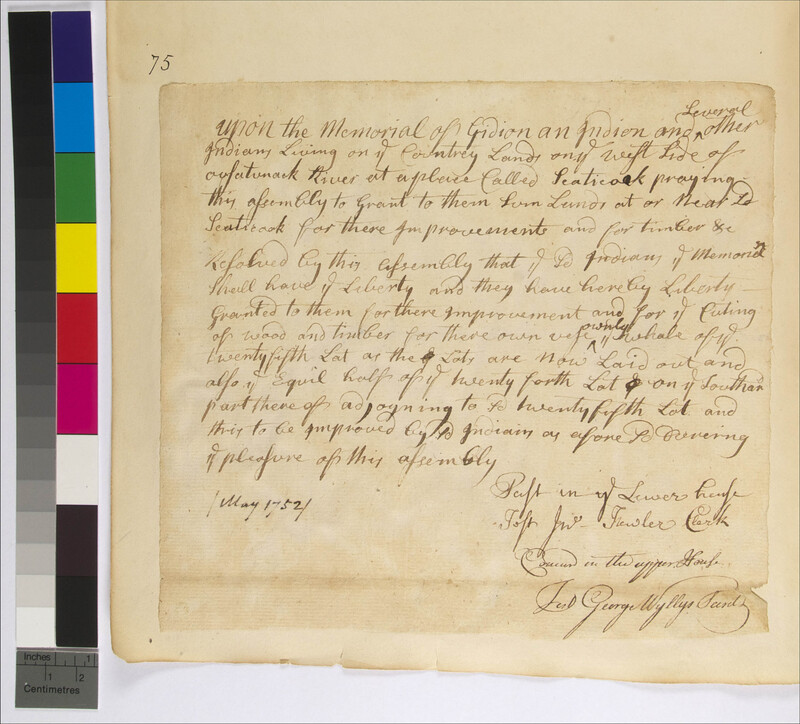 75
upon the Memorial of Gidion an Indion and ^Several other
Indians Living on ye Countrey Lands on ye west Side of
ousatunack River at a place Called Scaticock praying
this assembly to Grant to them Sum Lands at or Near sd
Scaticook for there Improvements and for timber &c
Resolved by this assembly that ye sd Indians ye Memorists
Shall have ye Liberty and they have hereby Liberty
Granted to them for there Improvement and for ye Cuting
of wood and timber for there own vese ^ownly ye whale of ye
twenty fifth Lot as the Lots are Now Laid out and
also ye Equil half of ye twenty forth Lot on ye Southarn
part there of adjoyning to sd twenty fifth Lot and
this to be Improved by sd Indians as afore sd Duering
ye pleasure of this assembly
[May 1752]
Past in ye Lower house
Test Jno Fowler Clerk
Concurd in the upper House
Test George Wyllys Secrt
Inches 1
1 2
Centimetres